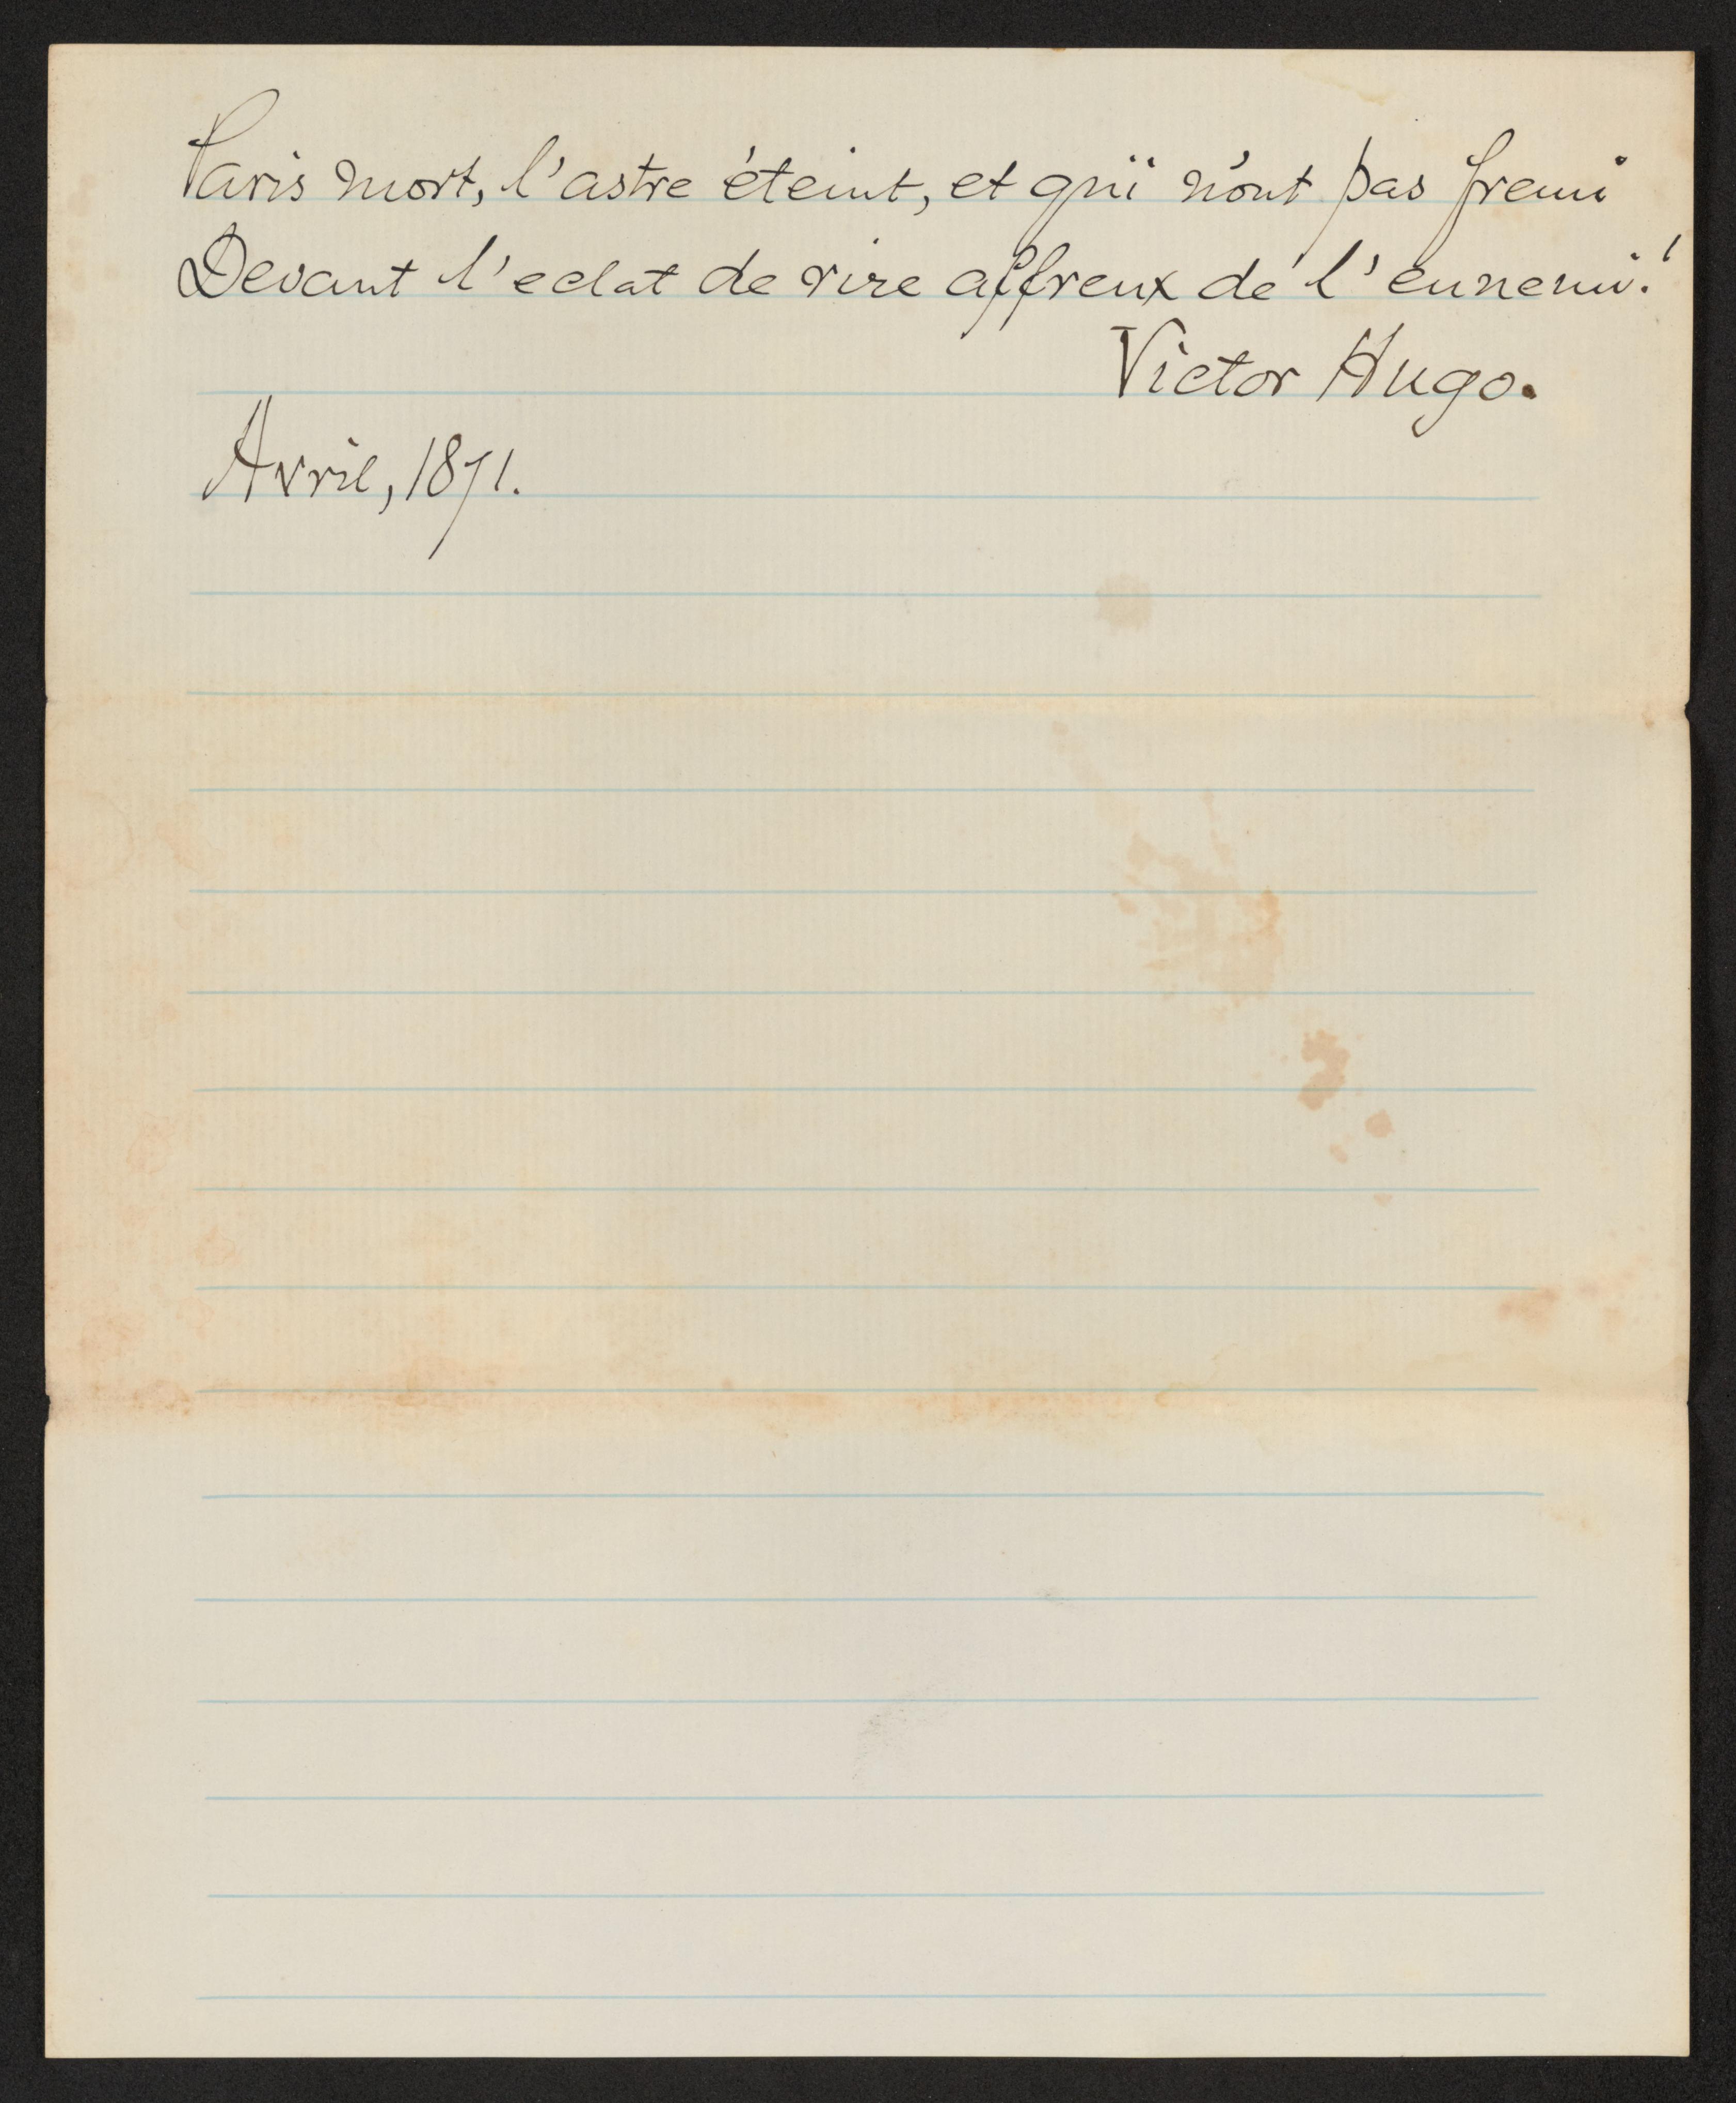 Paris mort, l'astre éteint, et qui n'ont pas fremi
Devant l'eclat de rire affreux de l'ennemi!
Victor Hugo.
Avril, 1871.